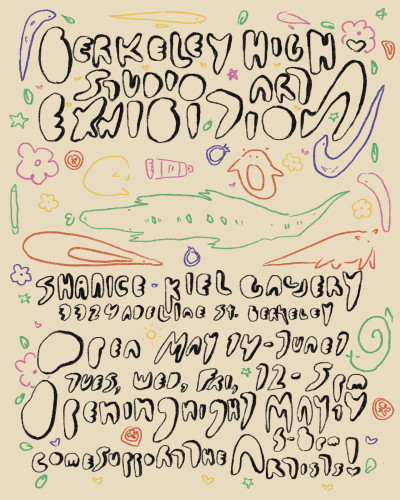 BERKELEY HIGH
STUDIO ART
EXHIBITION
SHANICE KIEL GALLERY
3324 ADELINE ST. BERKELEY
OPEN MAY 14-JUNE 7
TUES, WED, FRI, 12-5 PM
OPENING NIGHT MAY 14
5-8PM
COME SUPPORT THE ARTISTS!